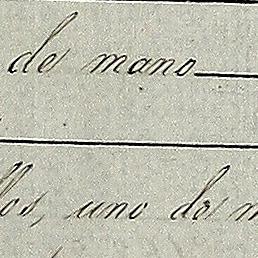 de mano
llos, uno de m